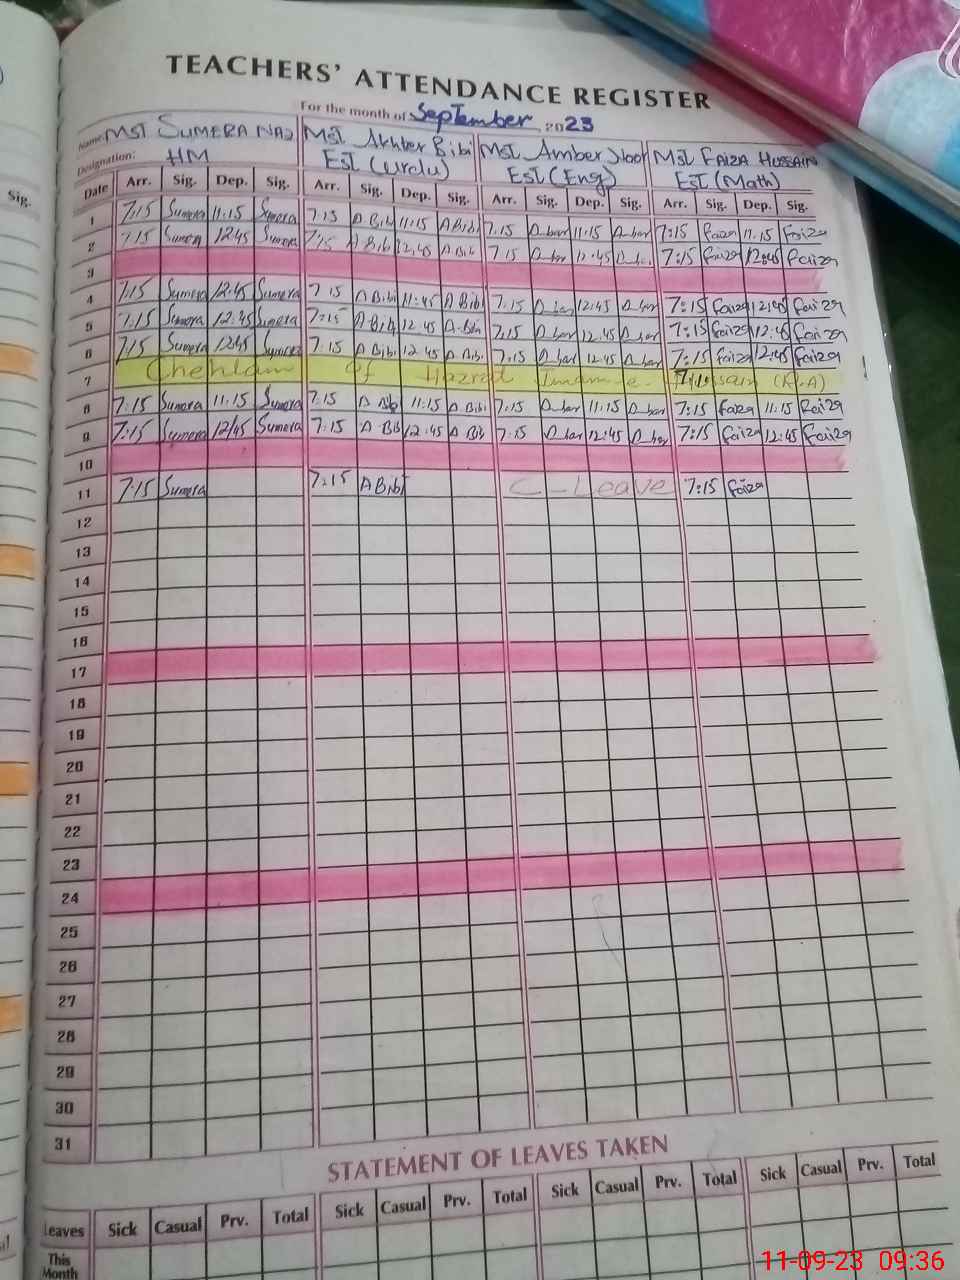 TEACHERS' ATTENDANCE REGISTER
For the month of September, 2023
Name: MST SUMERA NAZ MST Akhter Bibi MST Amber MST FAIZA HUSSAIN
Designation: HM EST (Urdu) EST (Eng) EST (Math)
Date Arr. Sig. Dep. Sig. Arr. Sig. Dep. Sig. Arr. Sig. Dep. Sig. Arr. Sig. Dep. Sig.
1 7:15 Sumera 11:15 Sumera 7:15 A Bibi 11:15 A Bibi 7:15 11:15 7:15 Faiza 11:15 Faiza
2 7:15 Sumera 12:45 Sumera 7:15 A Bibi 12:45 A Bibi 7:15 12:45 7:15 Faiza 12:45 Faiza
3
4 7:15 Sumera 12:45 Sumera 7:15 A Bibi 11:45 A Bibi 7:15 12:45 7:15 Faiza 12:45 Faiza
5 7:15 Sumera 12:45 Sumera 7:15 A Bibi 12:45 A Bibi 7:15 12:45 7:15 Faiza 12:45 Faiza
6 7:15 Sumera 12:45 Sumera 7:15 A Bibi 12:45 A Bibi 7:15 12:45 7:15 Faiza 12:45 Faiza
7 Chehlam of Hazrat Imam-e- Hussain (R.A)
8 7:15 Sumera 11:15 Sumera 7:15 A Bib 11:15 A Bibi 7:15 11:15 7:15 Faiza 11:15 Faiza
9 7:15 Sumera 12:45 Sumera 7:15 A Bib 12:45 A Bib 7:15 12:45 7:15 Faiza 12:45 Faiza
10
11 7:15 Sumera 7:15 A Bibi C-Leave 7:15 Faiza
12
13
14
15
16
17
18
19
20
21
22
23
24
25
26
27
28
29
30
31
STATEMENT OF LEAVES TAKEN
Leaves Sick Casual Prv. Total Sick Casual Prv. Total Sick Casual Prv. Total Sick Casual Prv. Total
This
Month
Sig.
11-09-23 09:36